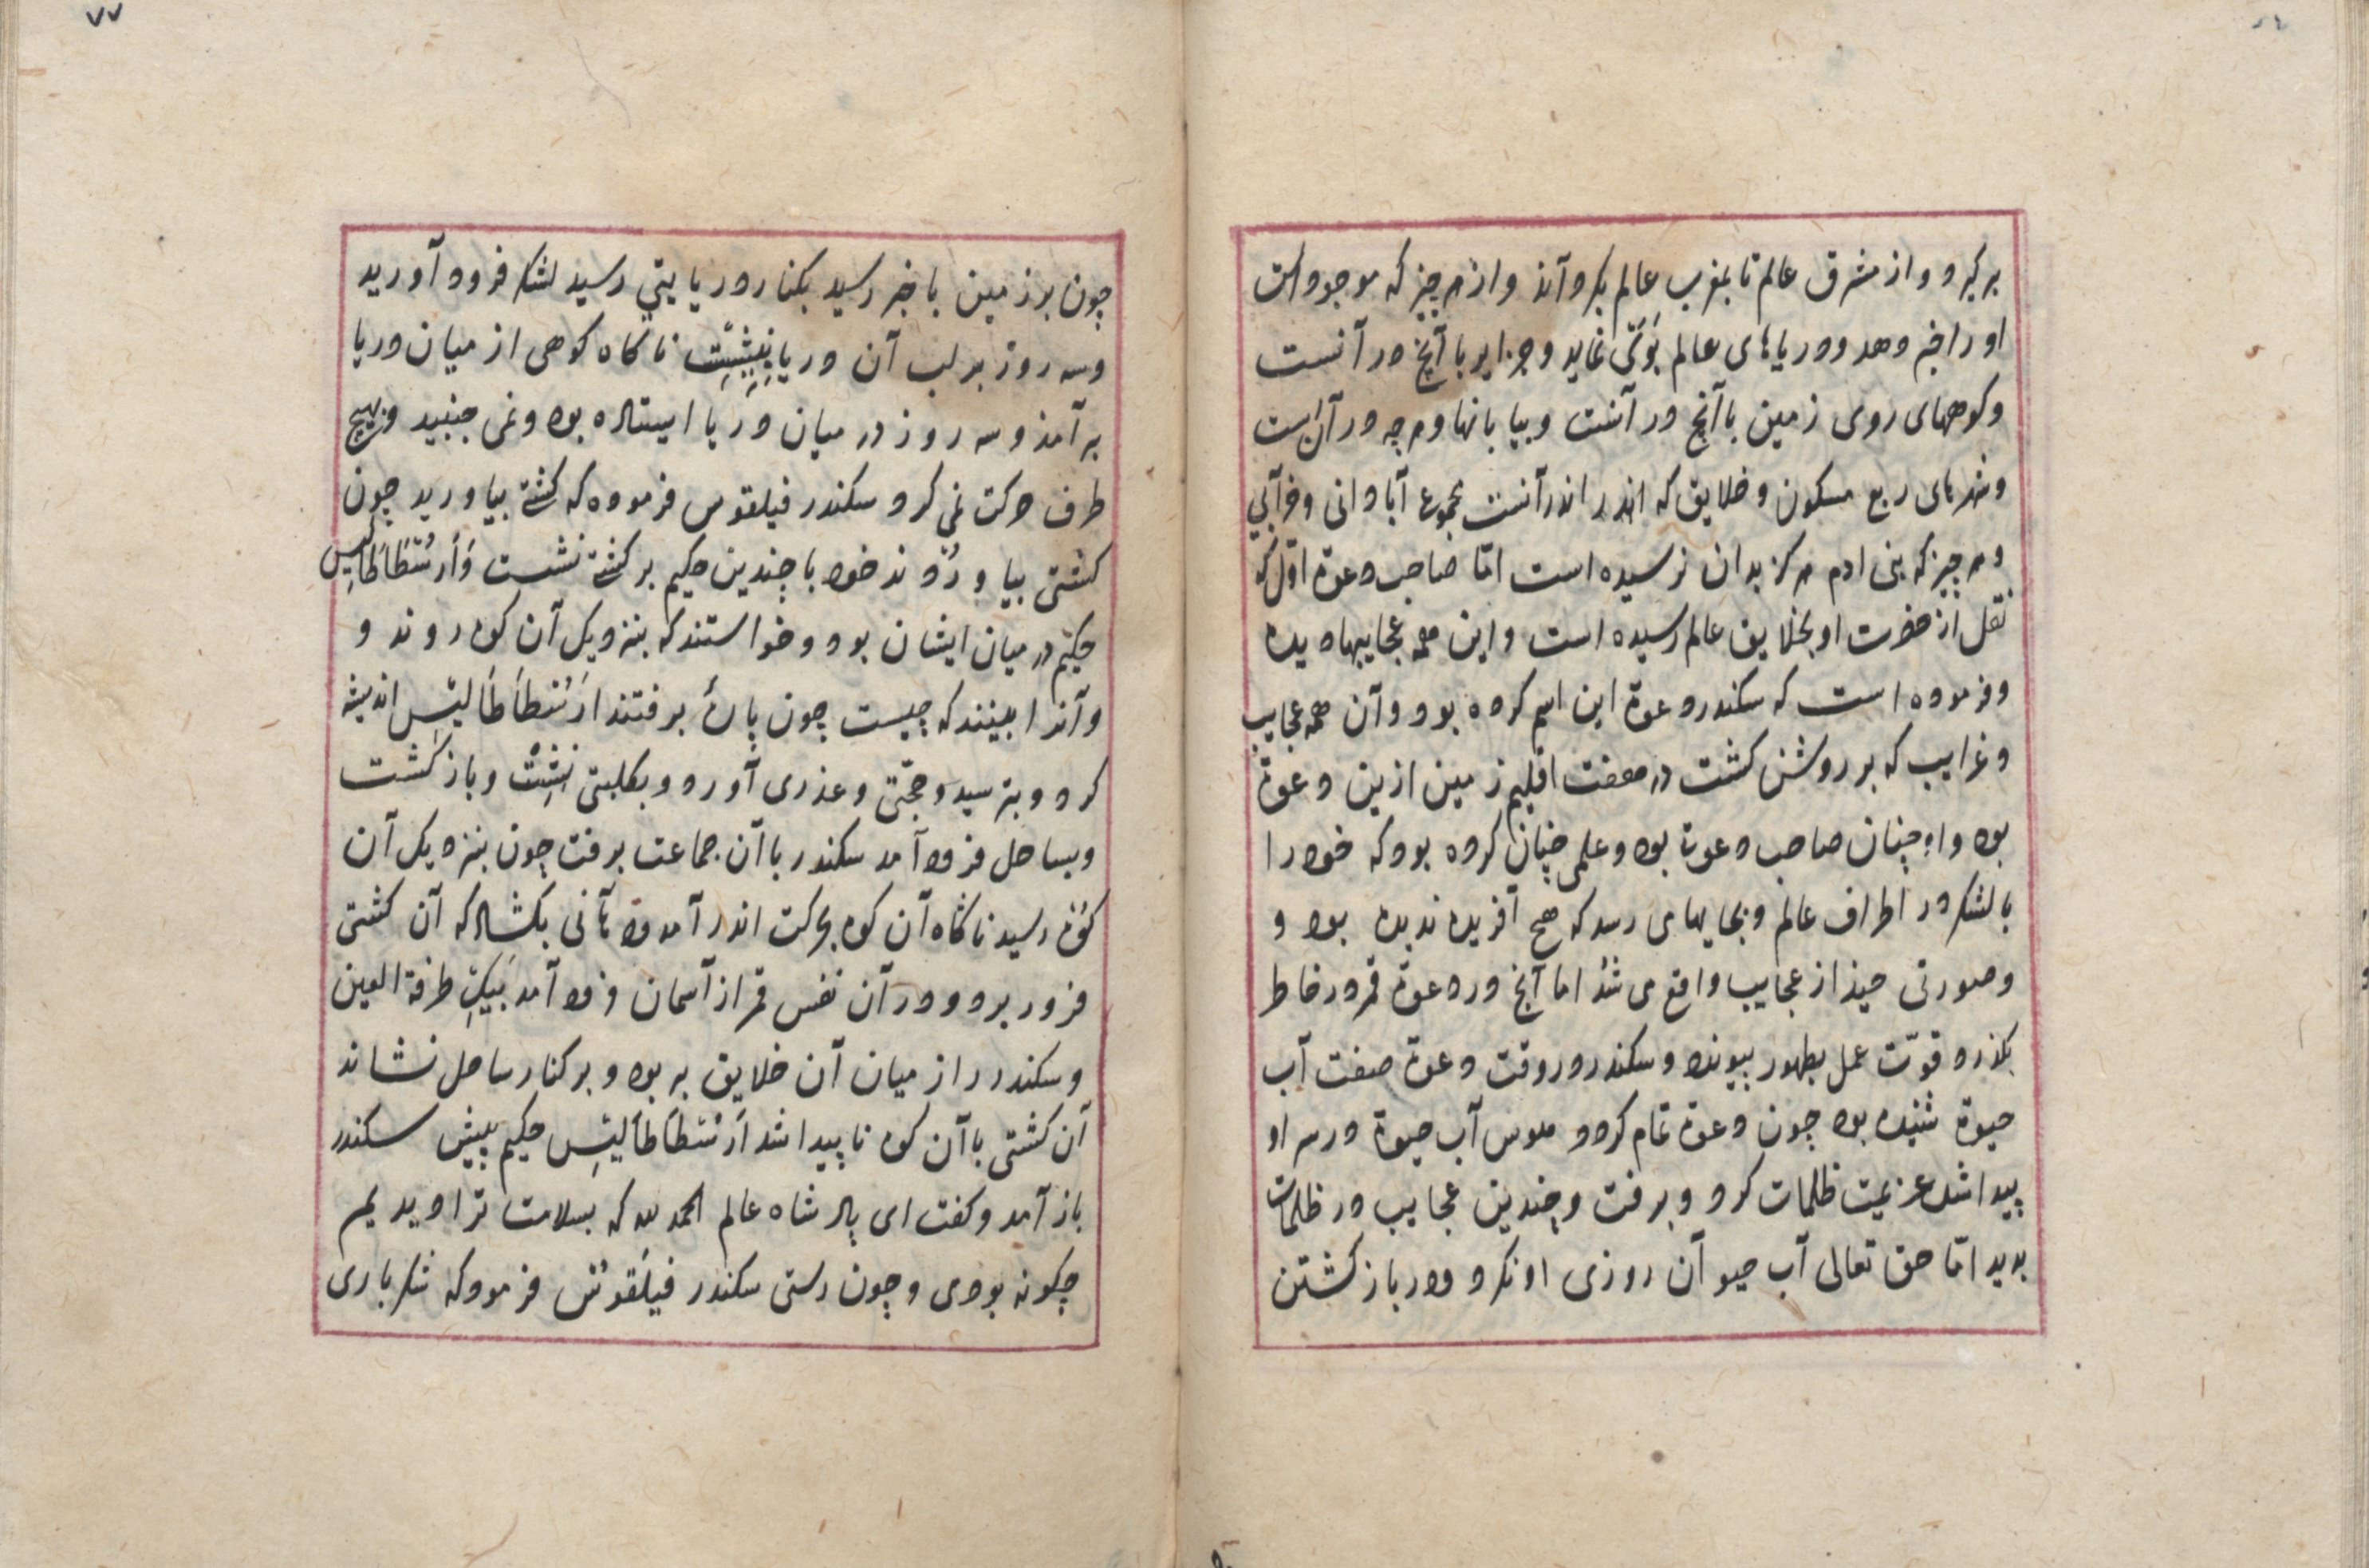 برگیرد و از مشرق عالم تا بمغرب عالم بکرداند و از هر چیز که موجود است
او را خبر دهد و دریاهای عالم بوی نماید و جزایر با آنچ در آنست
و کوههای روی زمین با آنچ در آنست و بیابانها و هر چه در آن است
و شهرهای ربع مسکون و خلایق که اندر اندر آنست مجموع آبادانی و خرابی
و هر چیز که بنی ادم هرکز بدان نرسیده است امّا صاحب دعوة اوّل که
نقل از حضرت او بخلایق عالم رسیده است و این همه عجایبها دیده
و فرموده است که سکندر دعوة این اسم کرده بود و آن همه عجایب
و غرایب که بر روشن کشت در هفت اقلیم زمین ازین دعوة
بود و او چنان صاحب دعوت بود و علمی چنان کرده بود که خود را
با لشکر در اطراف عالم و بجایهای رسد که هیچ آفریده ندیده بود و
و صورتی چند از عجایب واقع می شد اما آنچ در دعوة قمر در خاطر
بکذرد قوّت عمل بظهور پیوندد و سکندر در وقت دعوة صفت آب
حیوة شنیده بود چون دعوة تمام کرد و هوس آب حیوة در سر او
پیدا شد عزیمت ظلمات کرد و برفت و چندین عجایب در ظلمات
بدید امّا حق تعالی آب حیوان روزی او نکرد و در باز کشتن
٧٧
چون بر زمین باختر رسید بکنار دریایی رسید لشکر فرود آورید
و سه روز بر لب آن دریا بنشست ناکاه کوهی از میان دریا
بر آمد و سه روز در میان دریا ایستاده بود و نمی جنبید و بهیچ
طرف حرکت نمی کرد سکندر فیلقوس فرموده که کشتی بیاورید چون
کشتی بیاوردند خود با چندین حکیم بر کشتی نشست وَاَرسْتَطَاطَالیس
حکیم در میان ایشان بود و خواستند که بنزدیک آن کوه روند و
و آنرا ببینند که چیست چون پارۀ برفتند اَرَسْتطَاطَالیس اندیشه
کرد و بترسید و حجّتی و عذری آورد و بکلبتی نشست و باز کشت
و بساحل فرود آمد سکندر با آن جماعت برفت چون بنزدیک آن
کوه رسید ناکاه آن کوه بحرکت اندر آمد و دهانی بکشاد که آن کشتی
فرو برد و در آن نفس قمر از آسمان فرود آمد بیک طرفة العین
و سکندر را از میان آن خلایق بربود و بر کنار ساحل نشاند
آن کشتی با آن کوه ناپیدا شد اَرَسْتَطَاطَالیس حکیم پیش سکندر
باز آمد و کفت ای پادشاه عالم الحمد لله که بسلامت ترا دیدیم
چکونه بودی و چون رستی سکندر فیلقوس فرمود که شکر باری